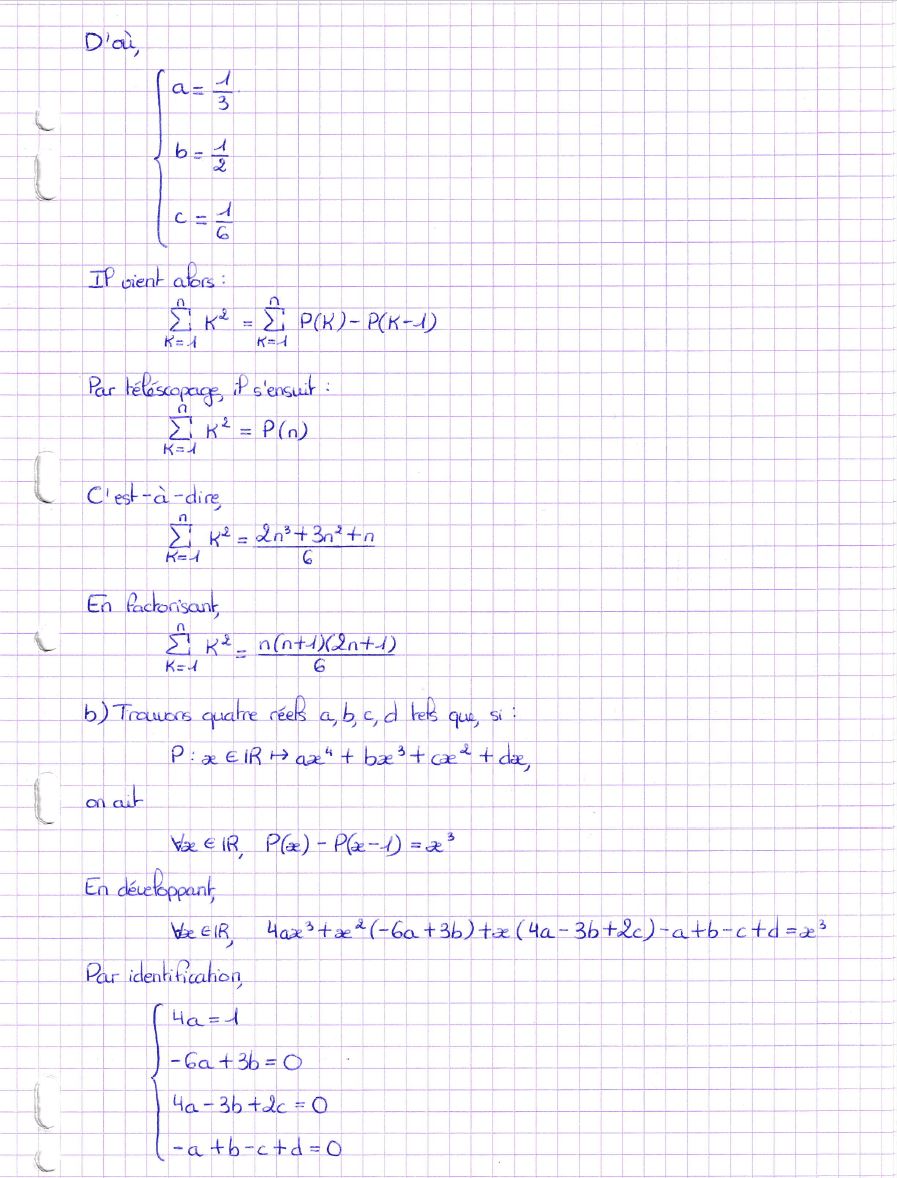 D'où,
a = 1/3
b = 1/2
c = 1/6
Il vient alors :
n∑K=1 K² = n∑K=1 P(K) - P(K-1)
Par téléscopage, il s'ensuit :
n∑K=1 K² = P(n)
C'est-à-dire,
n∑K=1 K² = (2n³ + 3n² + n)/6
En factorisant,
n∑K=1 K² = n(n+1)(2n+1)/6
b) Trouvons quatre réels a, b, c, d tels que, si :
P : x ∈ ℝ ↦ ax⁴ + bx³ + cx² + dx,
on ait
∀x ∈ ℝ, P(x) - P(x-1) = x³
En développant,
∀x ∈ ℝ, 4ax³ + x²(-6a + 3b) + x(4a - 3b + 2c) - a + b - c + d = x³
Par identification,
4a = 1
-6a + 3b = 0
4a - 3b + 2c = 0
-a + b - c + d = 0